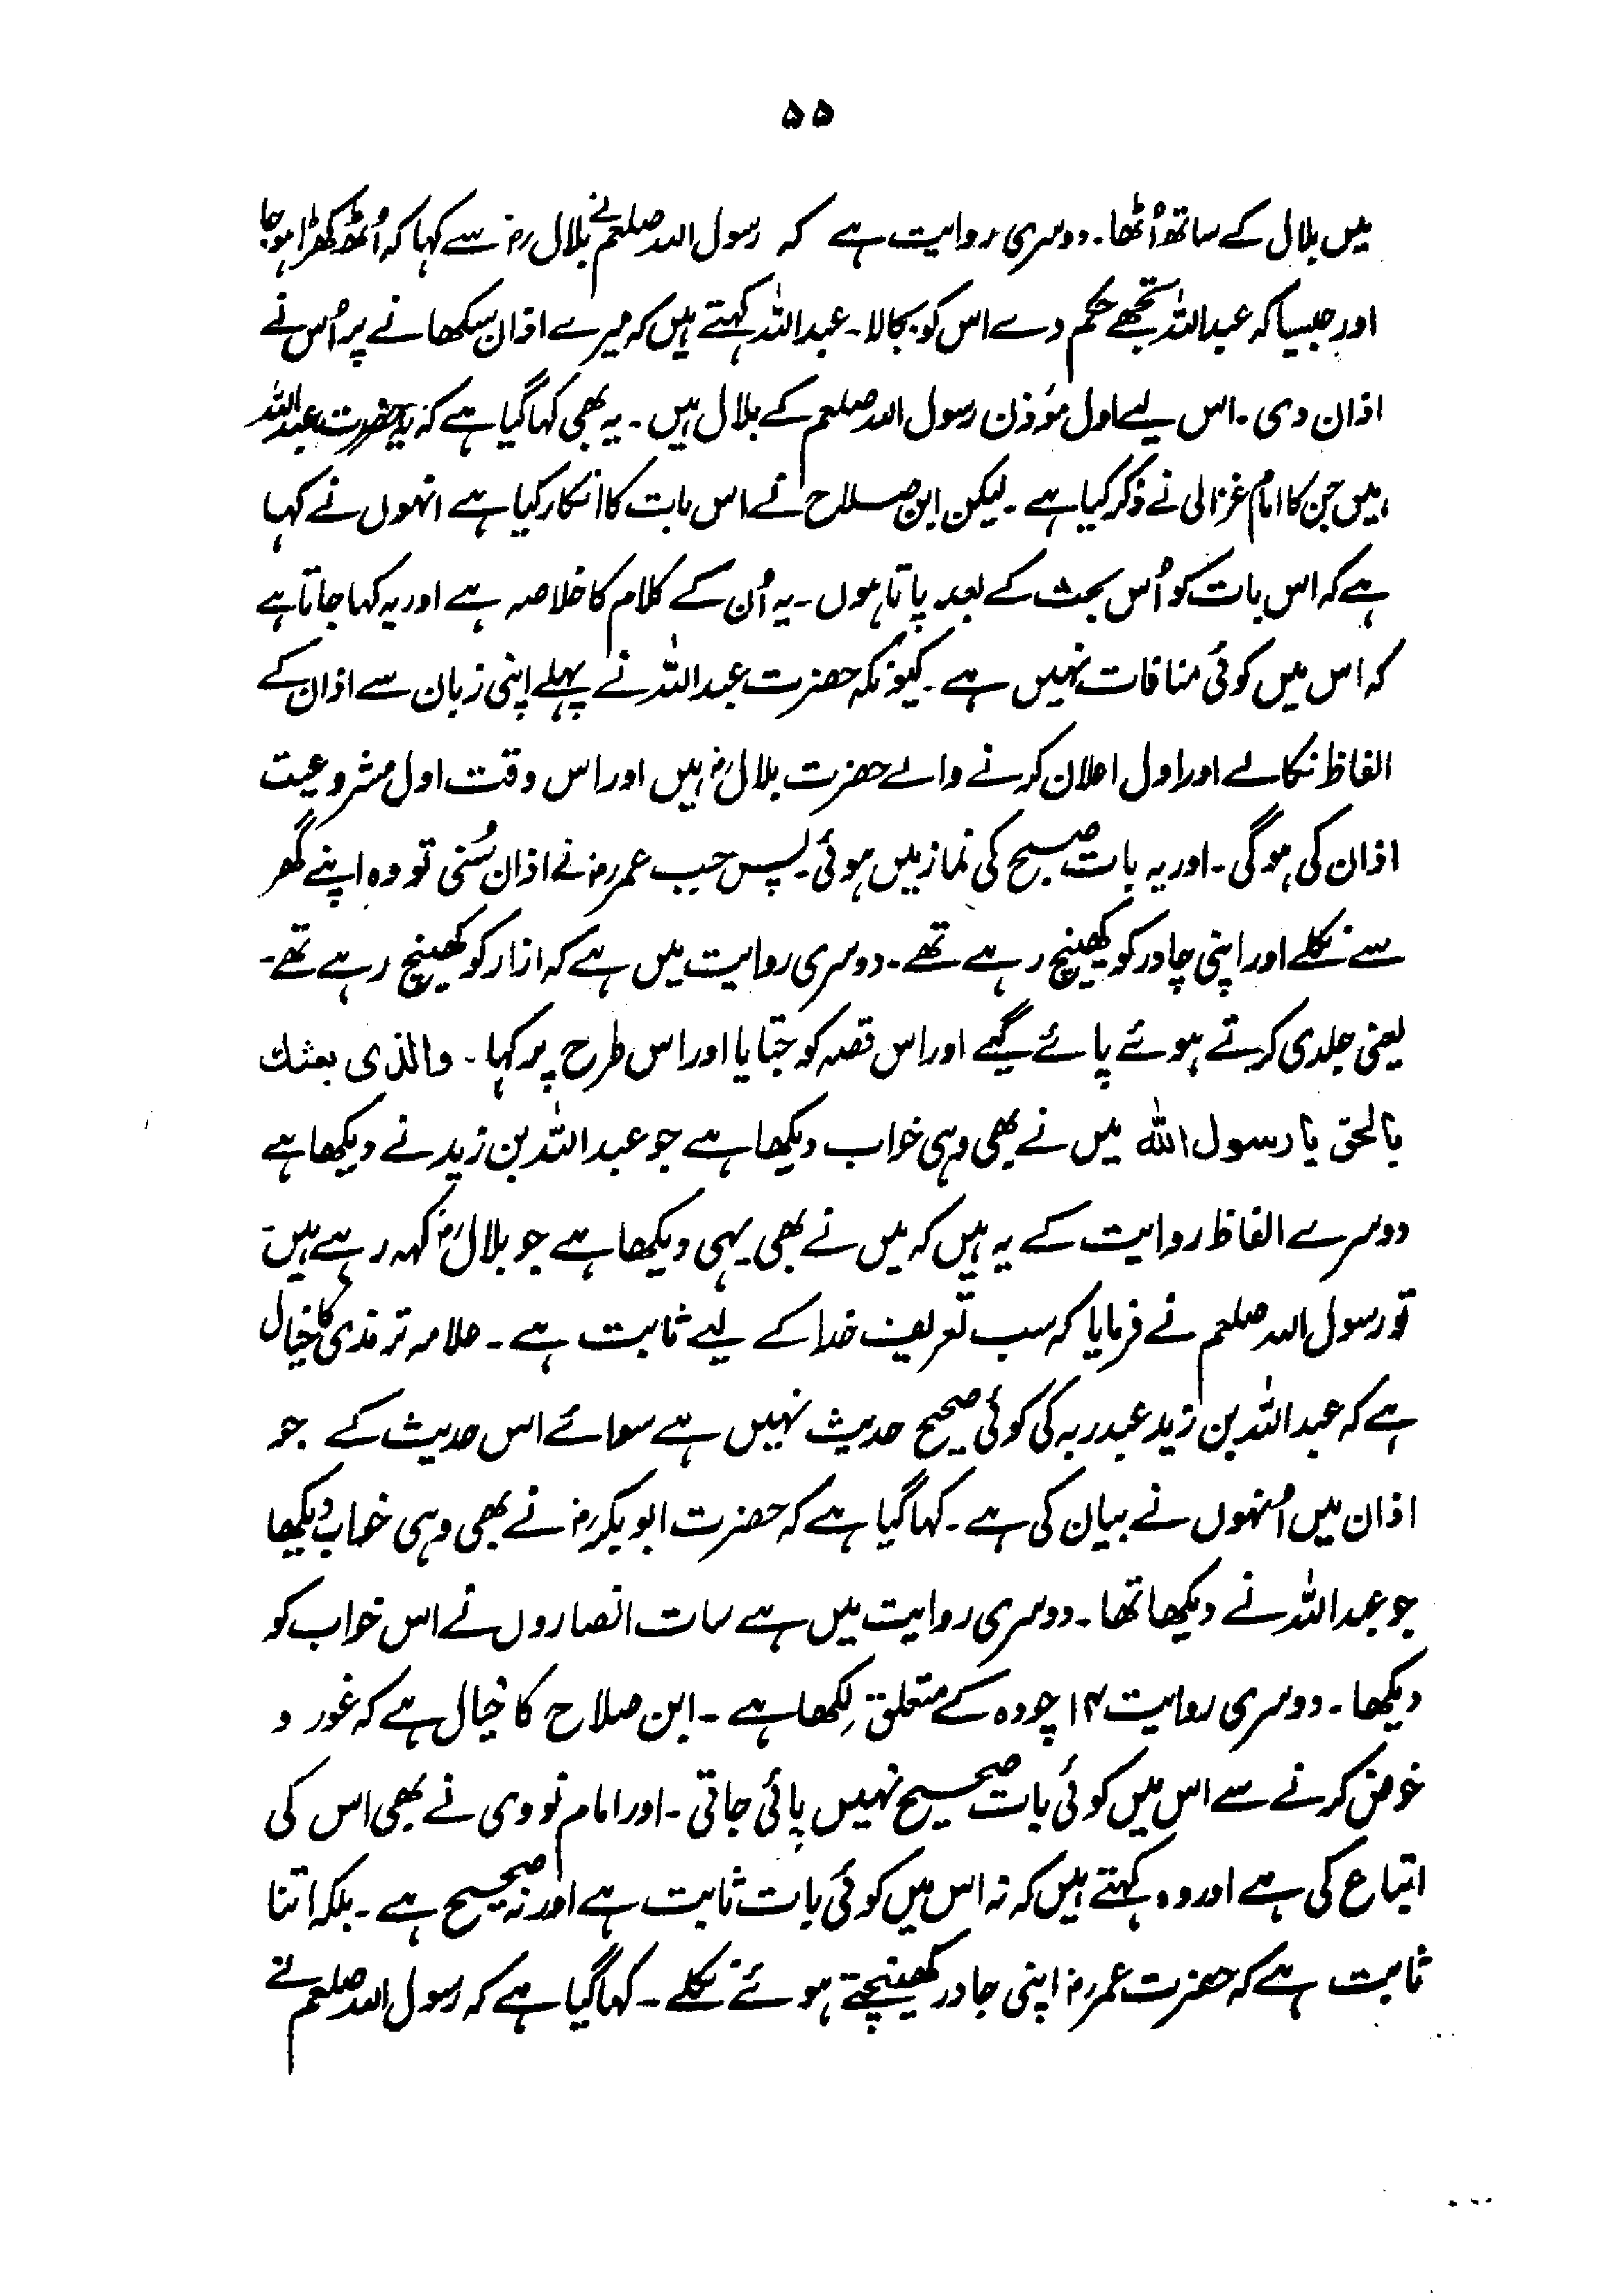 ۵۵
میں بلال کے ساتھ اُٹھا۔ دوسری روایت ہے کہ رسول اللہ صلعم نے بلال رض سے کہا کہ اُٹھ کھڑا ہو جا
اور جیسا کہ عبداللہ تجھے حکم دے اس کو بجالا۔ عبداللہ کہتے ہیں کہ میرے اذان سکھانے پر اُس نے
اذان دی۔ اس لیے اول مؤذن رسول اللہ صلعم کے بلال ہیں۔ یہ بھی کہا گیا ہے کہ یہ حضرت عبداللہ
ہیں جن کا امام غزالی نے ذکر کیا ہے۔ لیکن ابن صلاح نے اس بات کا انکار کیا ہے انہوں نے کہا
ہے کہ اس بات کو اُس بحث کے بعد پاتا ہوں۔ یہ اُن کے کلام کا خلاصہ ہے اور یہ کہا جاتا ہے
کہ اس میں کوئی منافات نہیں ہے۔ کیونکہ حضرت عبداللہ نے پہلے اپنی زبان سے اذان کے
الفاظ نکالے اور اول اعلان کرنے والے حضرت بلال رض ہیں اور اس وقت اول مشروعیت
اذان کی ہوگی۔ اور یہ بات صبح کی نماز میں ہوئی۔ پس جب عمر رض نے اذان سُنی تو وہ اپنے گھر
سے نکلے اور اپنی چادر کو کھینچ رہے تھے۔ دوسری روایت میں ہے کہ ازار کو کھینچ رہے تھے۔
یعنی جلدی کرتے ہوئے پائے گیے اور اس قصہ کو جتایا اور اس طرح پر کہا۔ والذی بعثك
بالحق یا رسول اللہ میں نے بھی وہی خواب دیکھا ہے جو عبداللہ بن زید نے دیکھا ہے
دوسرے الفاظ روایت کے یہ ہیں کہ میں نے بھی یہی دیکھا ہے جو بلال رض کہہ رہے ہیں۔
تو رسول اللہ صلعم نے فرمایا کہ سب تعریف خدا کے لیے ثابت ہے۔ علامہ ترمذی کا خیال
ہے کہ عبداللہ بن زید عبدربہ کی کوئی صحیح حدیث نہیں ہے سوائے اس حدیث کے جو
اذان میں اُنہوں نے بیان کی ہے۔ کہا گیا ہے کہ حضرت ابوبکر رض نے بھی وہی خواب دیکھا
جو عبداللہ نے دیکھا تھا۔ دوسری روایت میں ہے سات انصاروں نے اس خواب کو
دیکھا۔ دوسری روایت ۱۴ چودہ کے متعلق لِکھا ہے۔ ابن صلاح کا خیال ہے کہ غور و
خوض کرنے سے اس میں کوئی بات صحیح نہیں پائی جاتی۔ اور امام نووی نے بھی اس کی
اتباع کی ہے اور وہ کہتے ہیں کہ نہ اس میں کوئی بات ثابت ہے اور نہ صحیح ہے۔ بلکہ اتنا
ثابت ہے کہ حضرت عمر رض اپنی چادر کھینچتے ہوئے نکلے۔ کہا گیا ہے کہ رسول اللہ صلعم نے